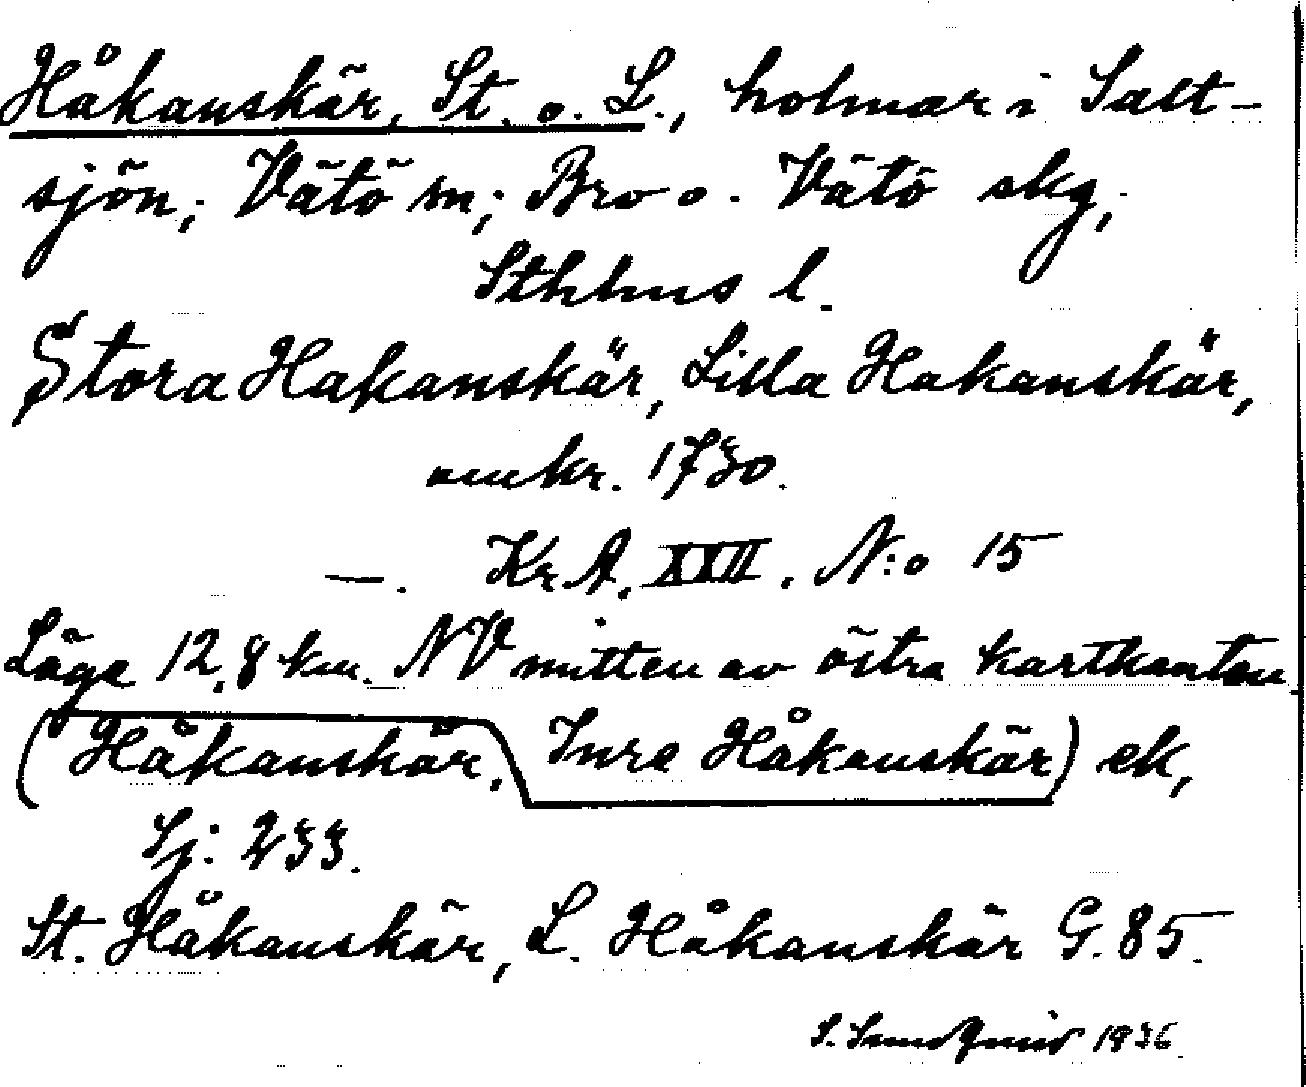 Håkanskär, St. o. L., holmar i Salt-
sjön; Vätö sn; Bro o. Vätö skg,
Sthlms l.
Stora Hakanskär, Lilla Hakanskär,
omkr. 1730.
—. KrA. XXII. N:o 15
Läge 12,8 km. NV mitten av östra kartkanten
(Håkanskär, Inre Håkanskär) ek,
Sj: 233.
St. Håkanskär, L. Håkanskär G. 85.
S. Sundqvist 1936